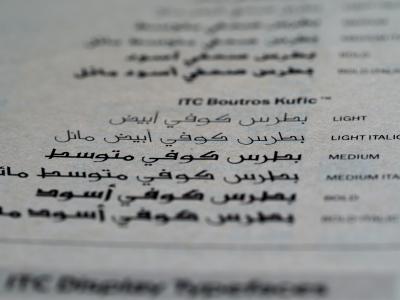 بطرس صحفي أسود BOLD
بطرس صحفي أسود مائل
ITC Boutros Kufic™
بطرس كوفي أبيض LIGHT
بطرس كوفي أبيض مائل LIGHT ITALIC
بطرس كوفي متوسط MEDIUM
بطرس كوفي متوسط مائل MEDIUM ITA
بطرس كوفي أسود BOLD
بطرس كوفي أسود BOLD ITALIC
ITC Display Typefaces